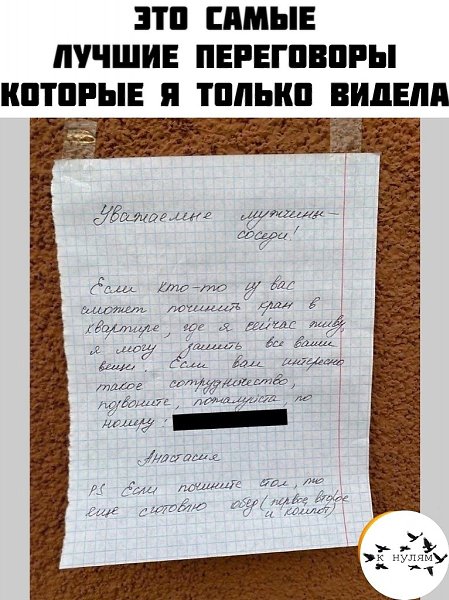 ЭТО САМЫЕ
ЛУЧШИЕ ПЕРЕГОВОРЫ
КОТОРЫЕ Я ТОЛЬКО ВИДЕЛА
Уважаемые мужчины-
соседи!
Если кто-то из вас
сможет починить кран в
квартире, где я сейчас живу,
я могу зашить все ваши
вещи. Если вам интересно
такое сотрудничество,
позвоните, пожалуйста, по
номеру:
Анастасия
PS Если почините стол, то
еще сготовлю обед (первое, второе
и компот)
к нулям